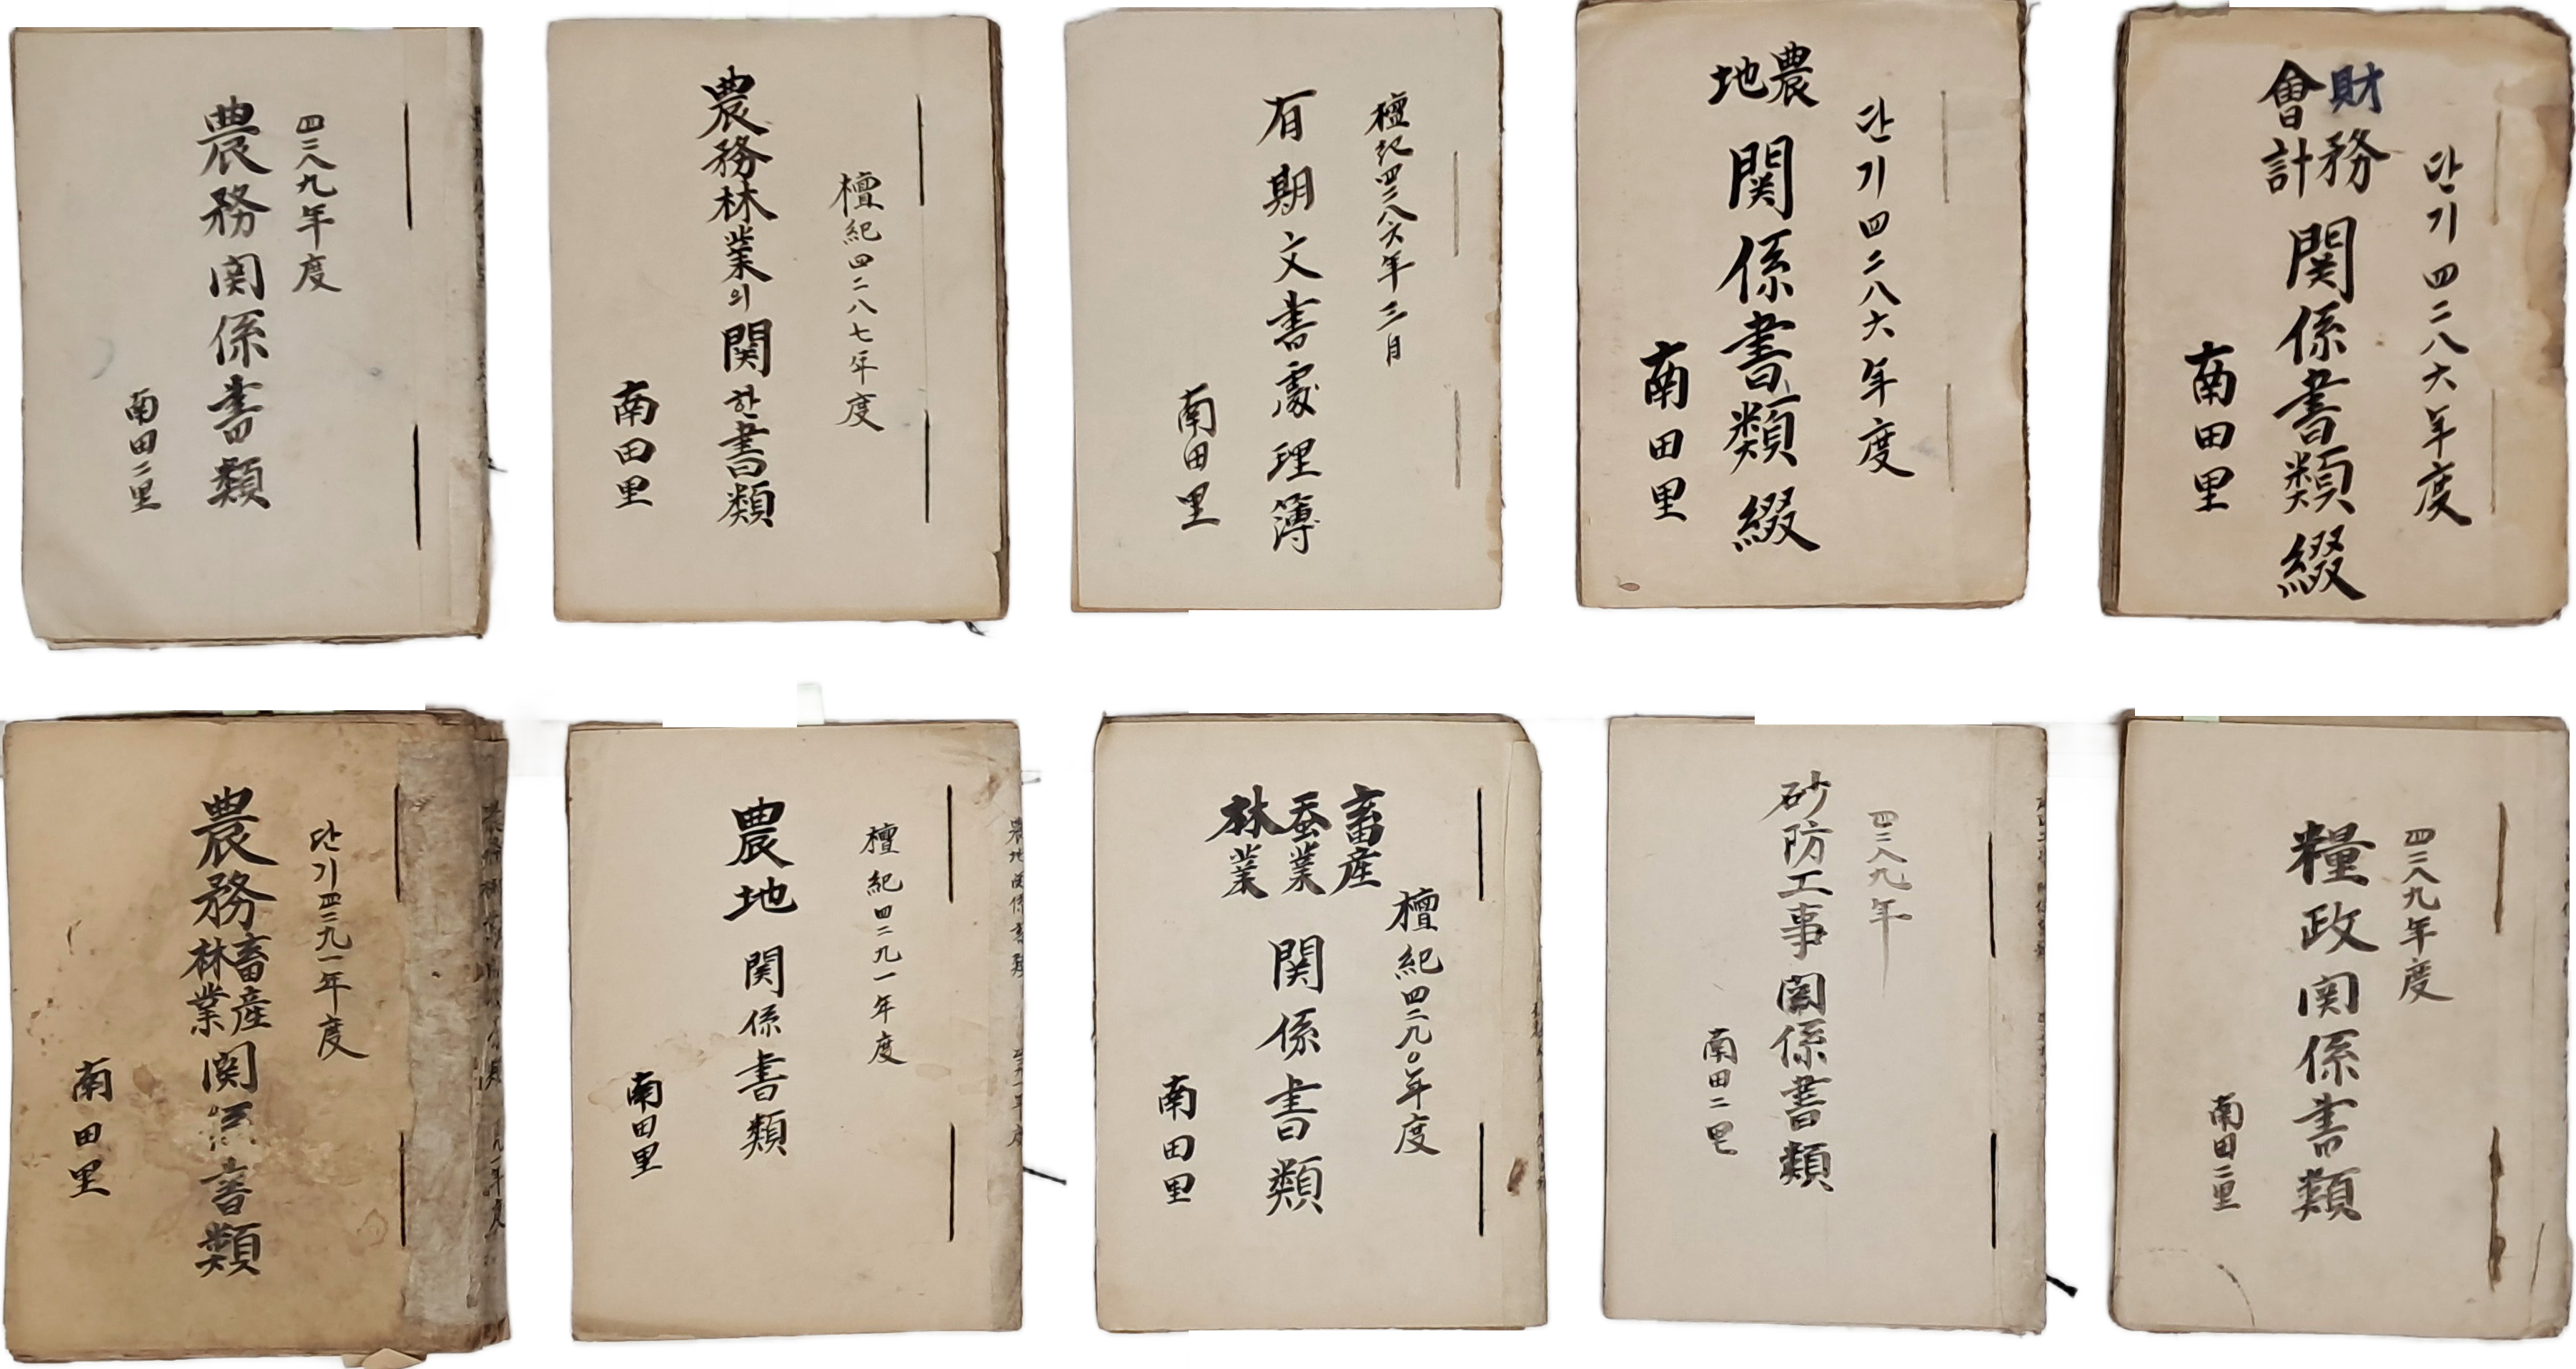 四二八九年度
農務関係書類
南田二里
檀紀四二八七年度
農務林業의関한書類
南田里
檀紀四二八六年三月
有期文書處理簿
南田里
단기四二八六年度
農地関係書類綴
南田里
단기四二八六年度
財務會計関係書類綴
南田里
단기四二九一年度
農務畜産林業関係書類
南田里
檀紀四二九一年度
農地関係書類
南田里
農地関係書類
檀紀四二九〇年度
畜産蚕業林業関係書類
南田里
四二八九年
砂防工事関係書類
南田二里
四二八九年度
糧政関係書類
南田二里